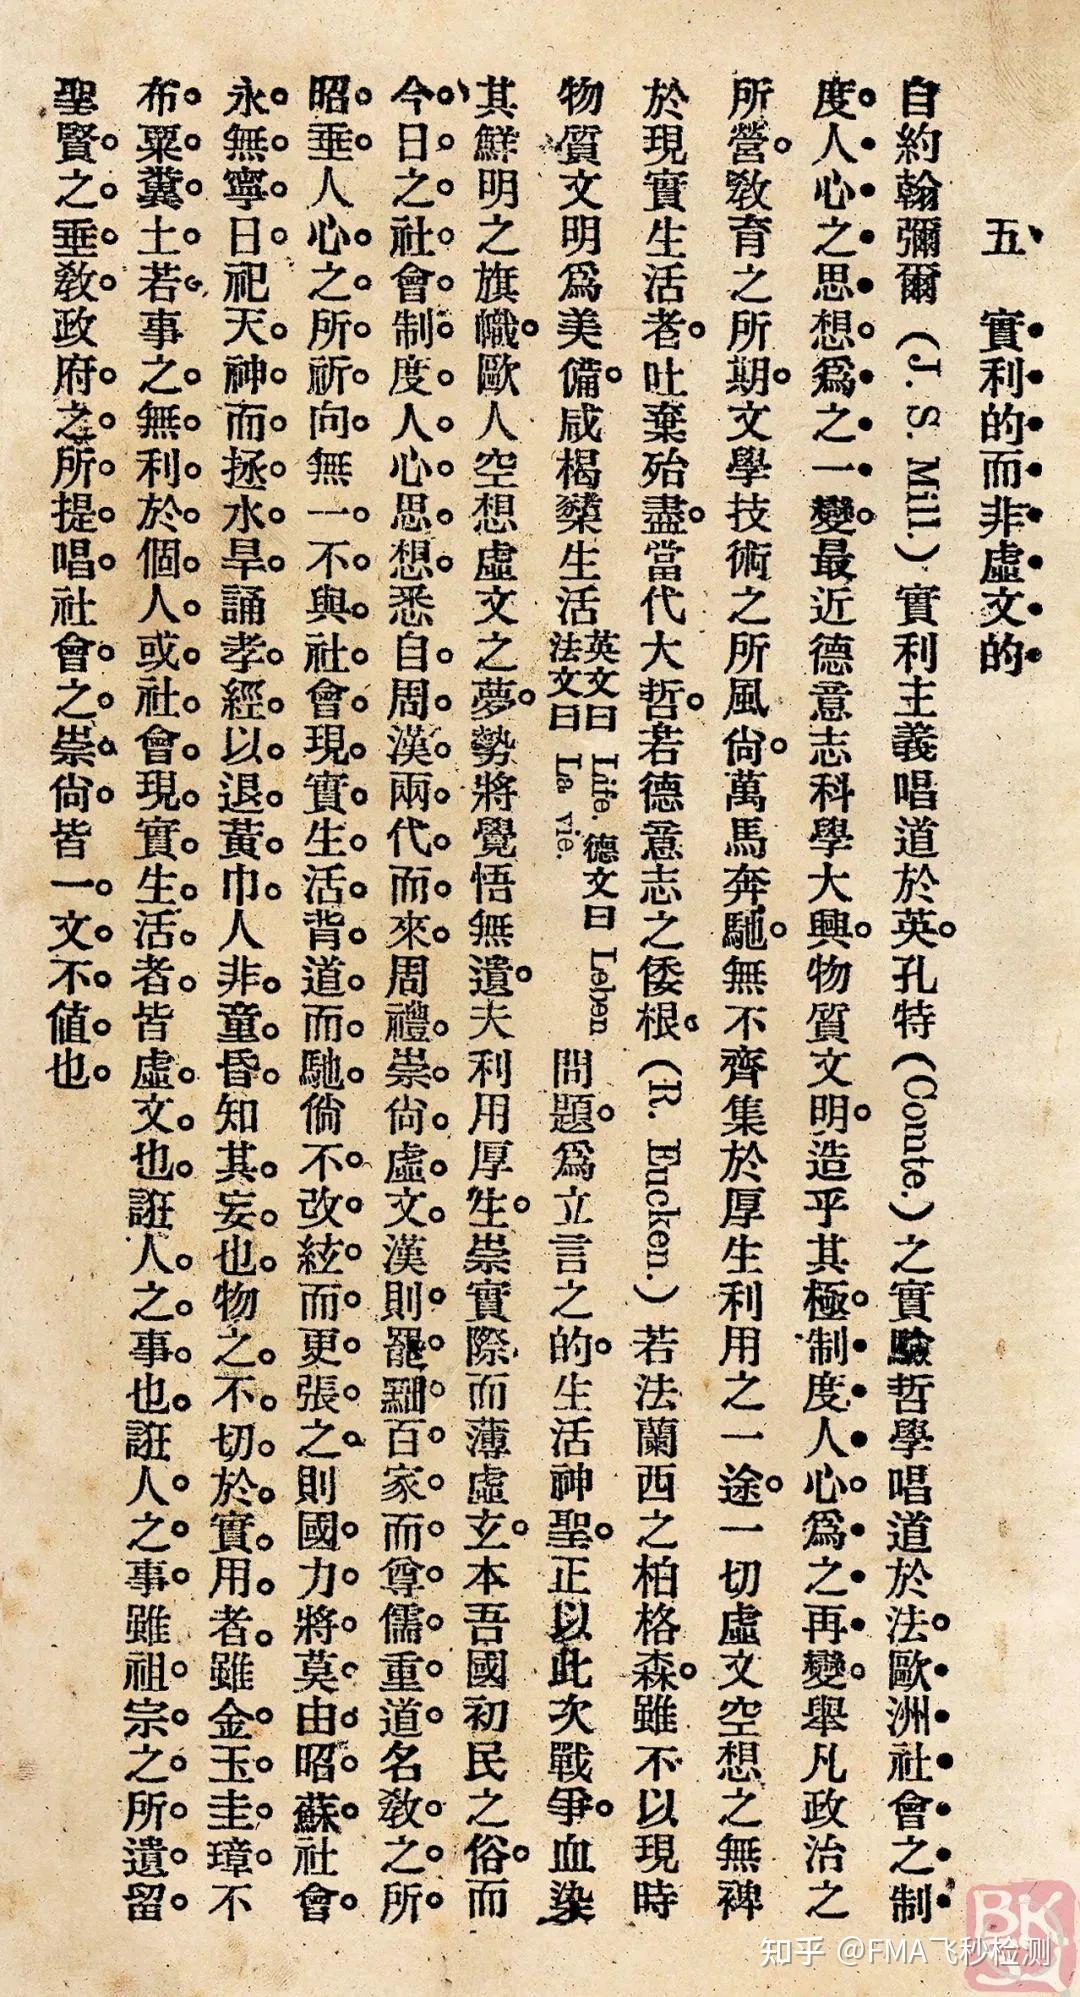 五、實利的而非虛文的
自約翰彌爾（J. S. Mill.）實利主義唱道於英。孔特（Comte.）之實驗哲學唱道於法。歐洲社會之制
度人心之思想爲之一變。最近德意志科學大興。物質文明。造乎其極。制度人心爲之再變。舉凡政治之
所營。敎育之所期。文學技術之所風尙。萬馬奔馳。無不齊集於厚生利用之一途。一切虛文空想之無裨
於現實生活者。吐棄殆盡。當代大哲。若德意志之倭根。（R. Eucken.）若法蘭西之柏格森。雖不以現時
物質文明爲美備。咸楬櫫生活英文曰 Life. 德文曰 Leben 法文曰 La vie. 問題。爲立言之的。生活神聖。正以此次戰爭。血染
其鮮明之旗幟。歐人空想虛文之夢。勢將覺悟無遺。夫利用厚生。崇實際而薄虛玄。本吾國初民之俗。而
今日之社會制度人心思想悉自周漢兩代而來周禮崇尙虛文漢則罷黜百家而尊儒重道名敎之所
昭垂人心之所祈向無一不與社會現實生活背道而馳倘不改絃而更張之則國力將莫由昭蘇社會
永無寧日祀天神而拯水旱誦孝經以退黃巾人非童昏知其妄也物之不切於實用者雖金玉圭璋不
布粟糞土若事之無利於個人或社會現實生活者皆虛文也誑人之事也誑人之事雖祖宗之所遺留
聖賢之垂敎政府之所提唱社會之崇尙皆一文不值也
知乎 @FMA飞秒检测